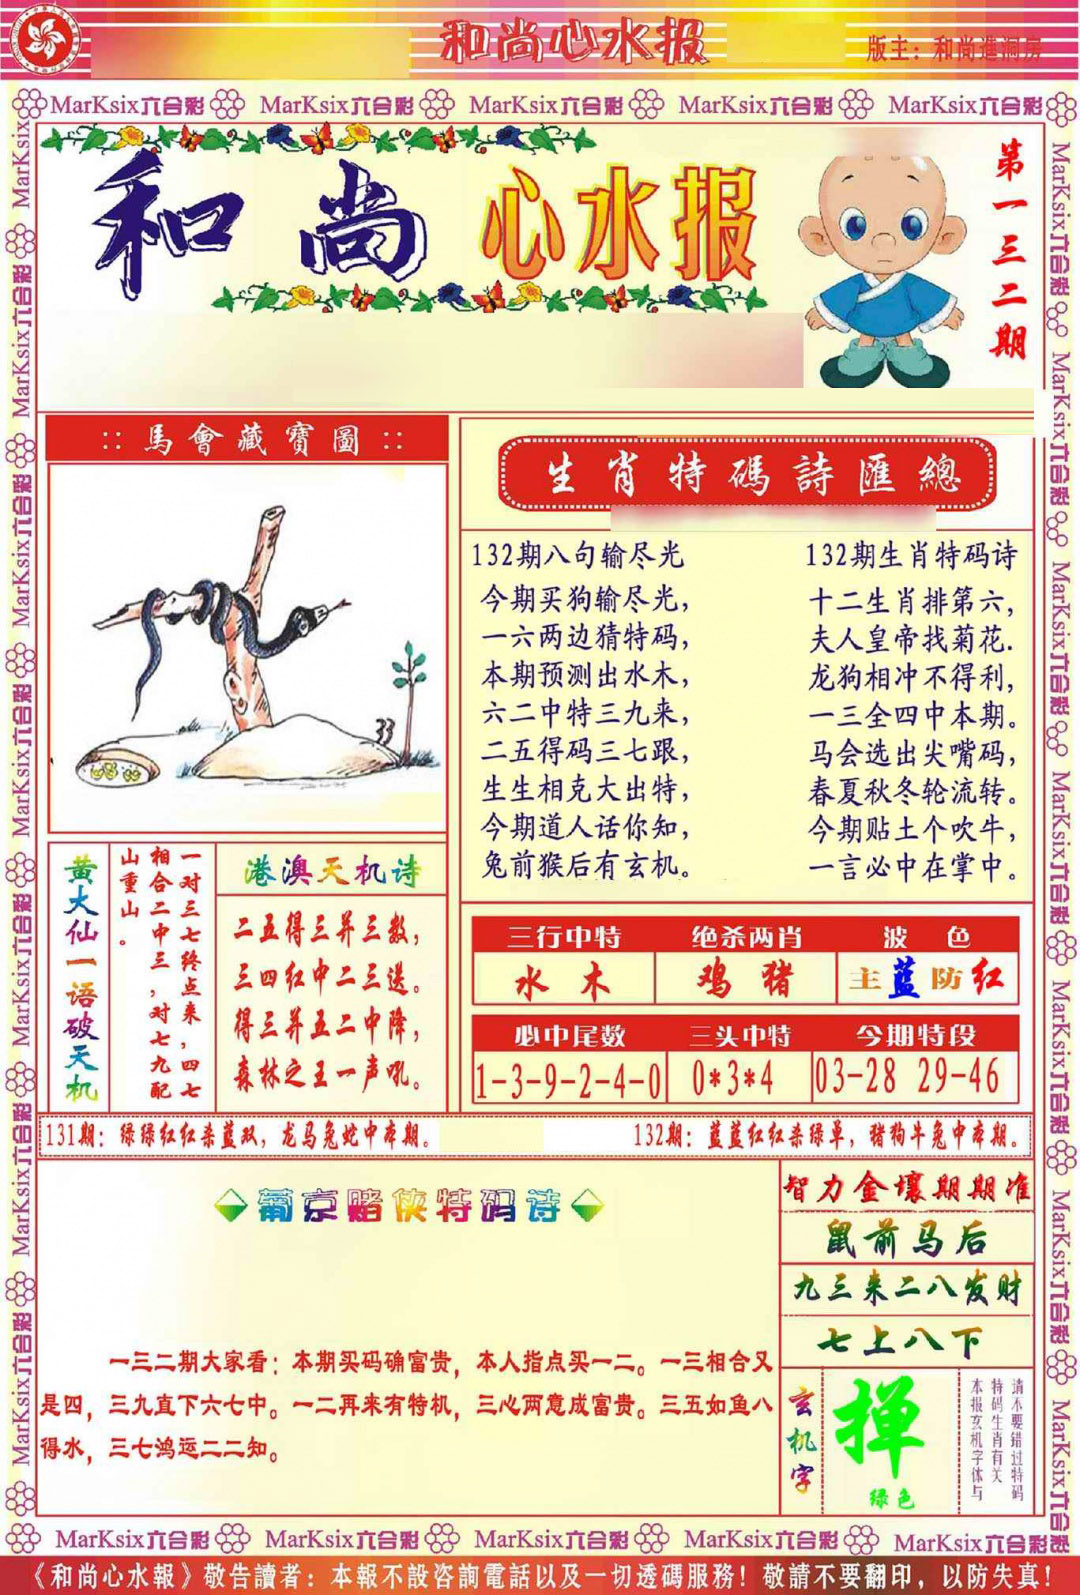 和尚心水报
版主：和尚進洞房
MarKsix六合彩 MarKsix六合彩 MarKsix六合彩 MarKsix六合彩 MarKsix六合彩
和尚心水报
第一三二期
::馬會藏寶圖::
33
生肖特碼詩匯總
132期八句输尽光
今期买狗输尽光，
一六两边猜特码，
本期预测出水木，
六二中特三九来，
二五得码三七跟，
生生相克大出特，
今期道人话你知，
兔前猴后有玄机。
132期生肖特码诗
十二生肖排第六，
夫人皇帝找菊花.
龙狗相冲不得利，
一三全四中本期。
马会选出尖嘴码，
春夏秋冬轮流转。
今期贴土个吹牛，
一言必中在掌中。
黄大仙一语破天机
一对三七终点来，四七
相合二中三，对七九配
山重山。
港澳天机诗
二五得三并三数，
三四红中二三送。
得三并五二中降，
森林之王一声吼。
三行中特 绝杀两肖 波色
水木 鸡猪 主蓝防红
必中尾数 三头中特 今期特段
1-3-9-2-4-0 0*3*4 03-28 29-46
131期：绿绿红红杀蓝双，龙马兔蛇中本期。
132期：蓝蓝红红杀绿单，猪狗牛兔中本期。
葡京赌侠特码诗
一三二期大家看：本期买码确富贵，本人指点买一二。一三相合又
是四，三九直下六七中。一二再来有特机，三心两意成富贵。三五如鱼八
得水，三七鸿运二二知。
智力金壤期期准
鼠前马后
九三来二八发财
七上八下
玄机字
掸
绿色
请不要错过特码
特码生肖有关
本报玄机字体与
MarKsix六合彩 MarKsix六合彩 MarKsix六合彩 MarKsix六合彩 MarKsix六合彩
《和尚心水報》敬告讀者：本報不設咨前電話以及一切透碼服務！敬請不要翻印，以防失真！